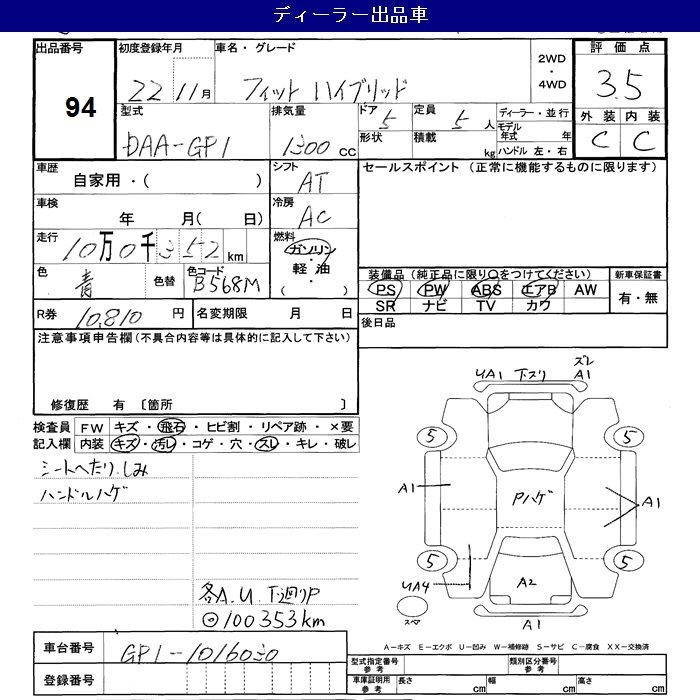 ディーラー出品車
出品番号 初度登録年月 車名・グレード 2WD ・ 4WD 評価点
94 22 11月 フィット ハイブリッド 3.5
型式 排気量 ドア 定員 ディーラー・並行 外装 内装
DAA-GP1 1300 cc 5 5人 モデル年式 年 C C
形状 積載 kg ハンドル 左・右
車歴 シフト セールスポイント (正常に機能するものに限ります)
自家用・( ) AT
車検 冷房
年 月( 日) AC
走行 燃料
10万0千352 km ガソリン・軽油・( )
色 色替 色コード 装備品 (純正品に限り○をつけてください) 新車保証書
青 B568M PS PW ABS エアB AW 有・無
SR ナビ TV カワ
R券 10,810 円 名変期限 月 日 後日品
注意事項申告欄 (不具合内容等は具体的に記入して下さい)
修復歴 有 〔箇所 〕
検査員 FW キズ・飛石・ヒビ割・リペア跡・×要
記入欄 内装 キズ・汚レ・コゲ・穴・スレ・キレ・破レ
シートへたり、しみ
ハンドルハゲ
各A.U.下廻りP
100353km
UA1 下スリ ズレ A1
5 5
A1 Pハゲ A1
5 5
UA4 A2
スペア A1
A-キズ E-エクボ U-凹み W-補修跡 S-サビ C-腐食 XX-交換済
車台番号 GP1-1016030
登録番号
型式指定番号 参考 類別区分番号 参考
車庫証明用 参考 長さ cm 幅 cm 高さ cm